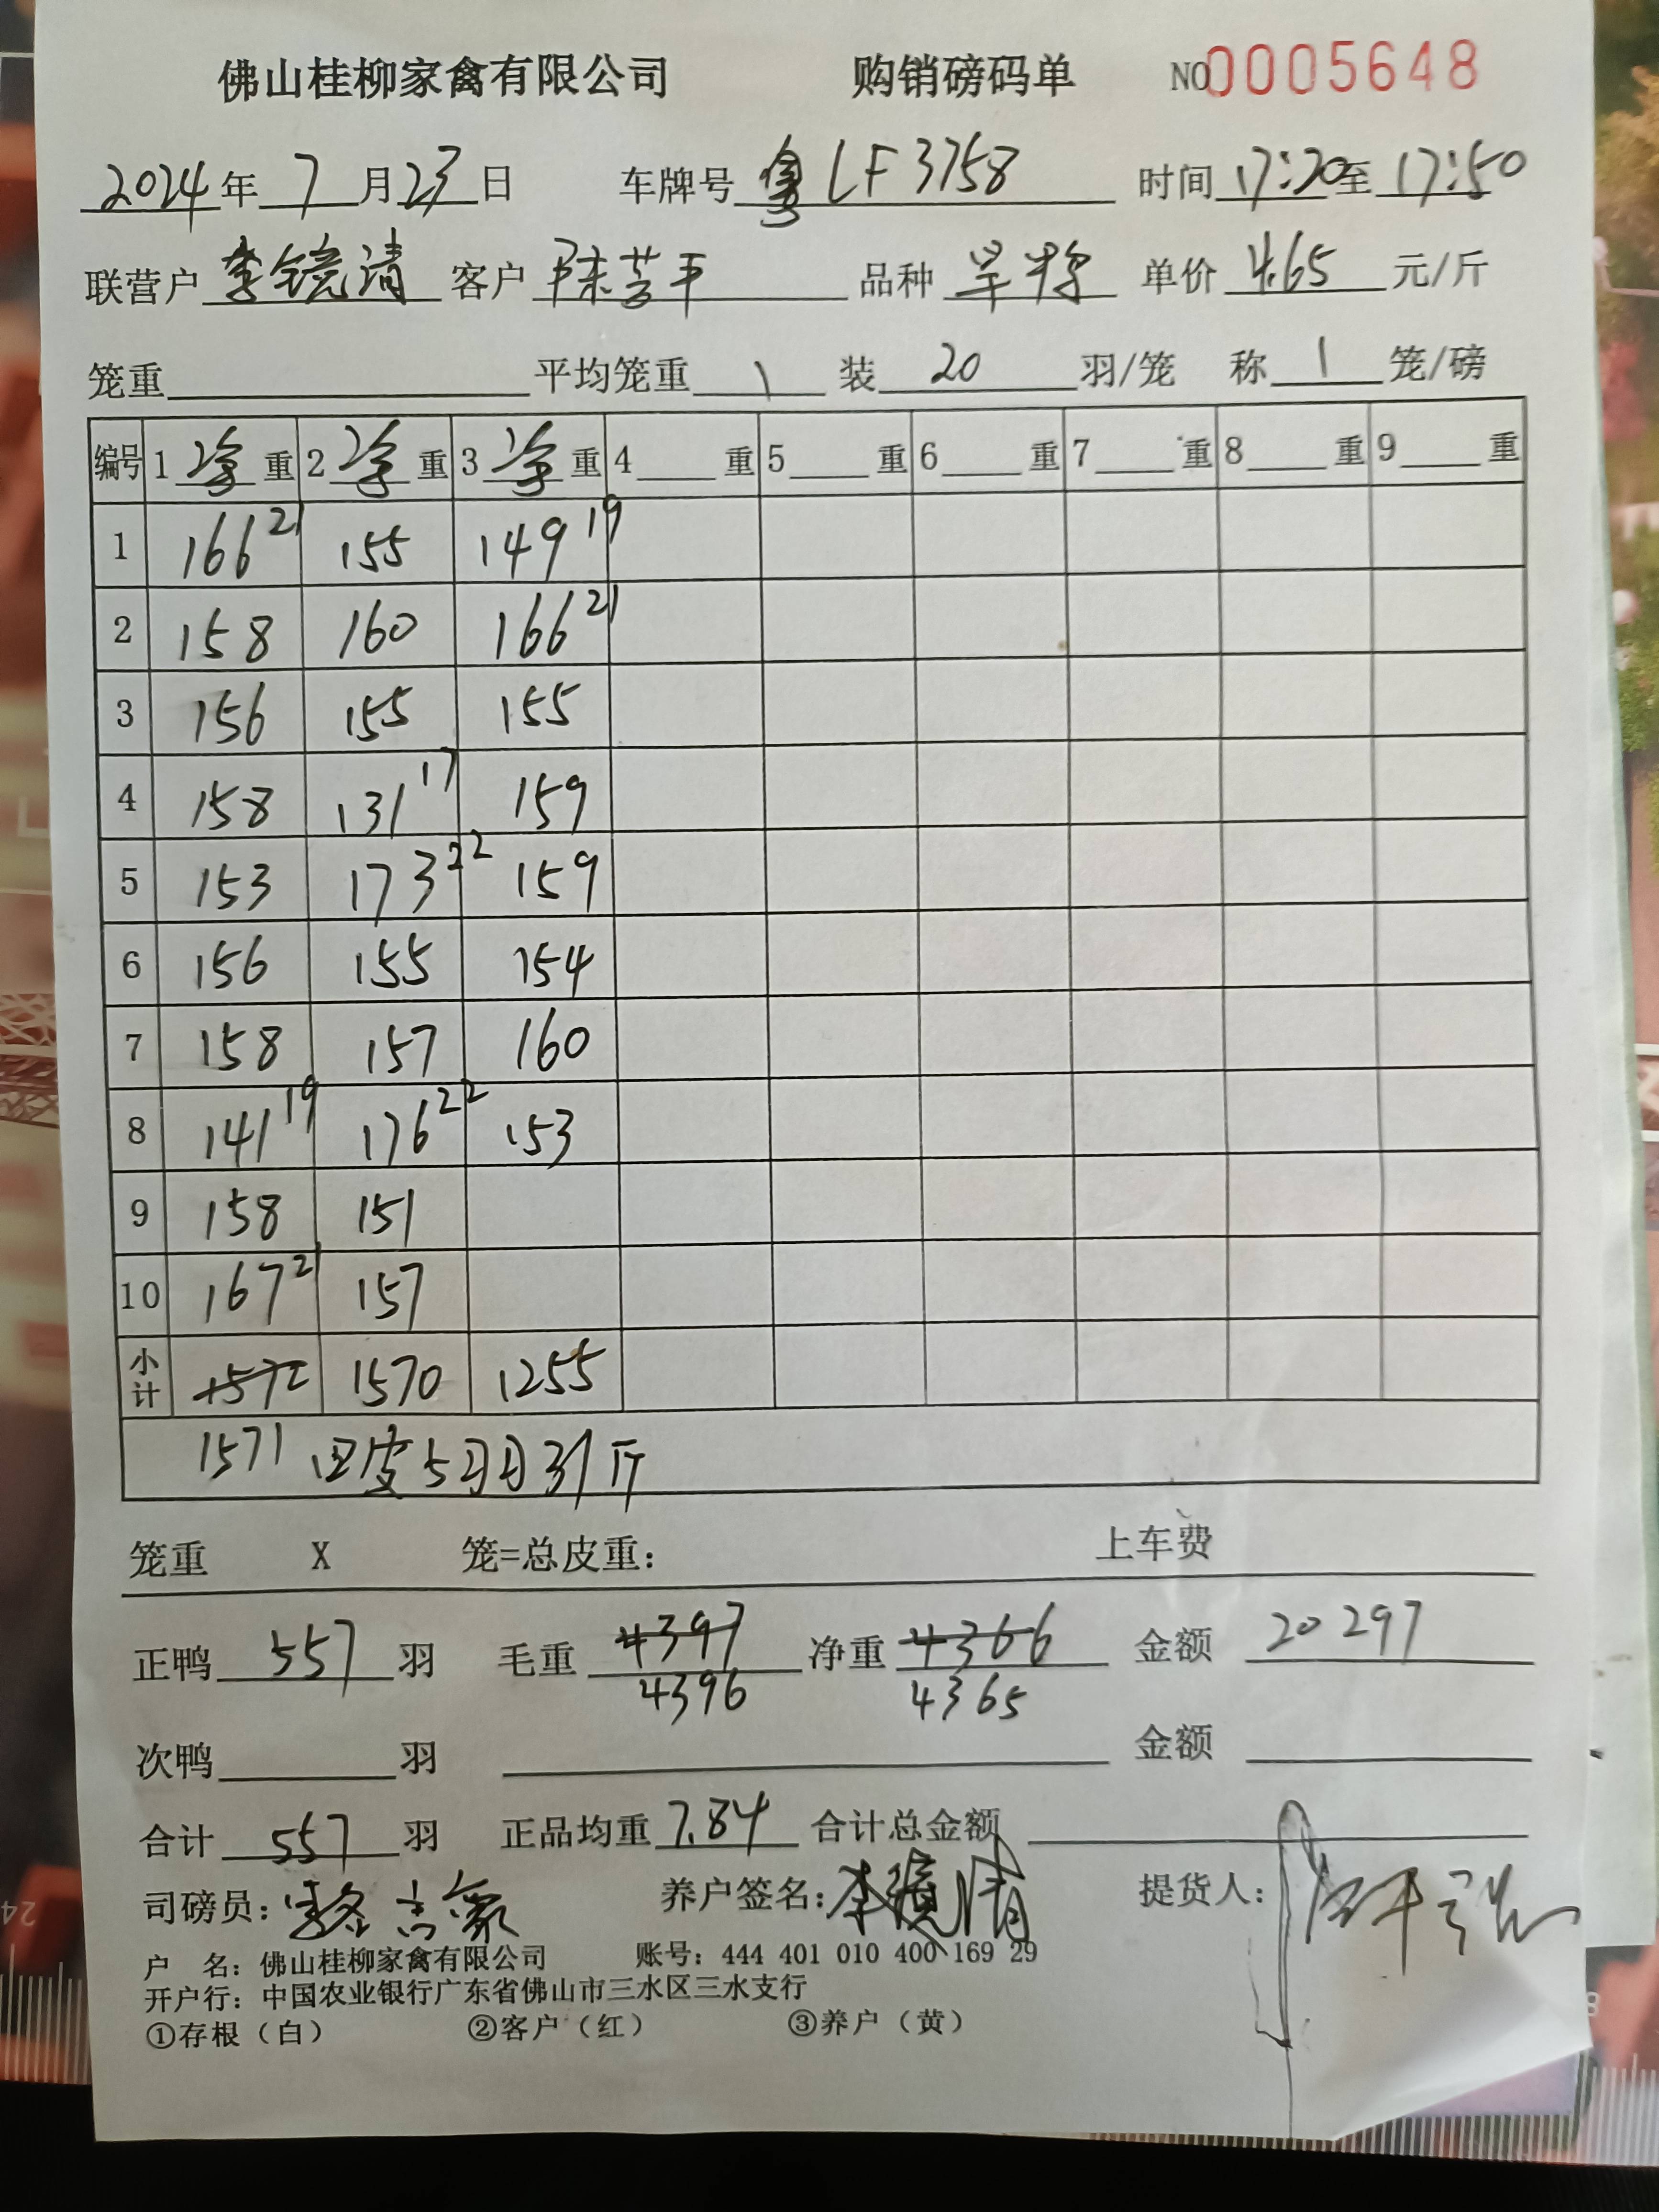 佛山桂柳家禽有限公司 购销磅码单 NO0005648
2024年7月23日 车牌号 粤LF3758 时间 17:20至17:50
联营户 李镜清 客户 陈芳平 品种 单价 4.65 元/斤
笼重 平均笼重 \ 装 20 羽/笼 称 1 笼/磅
编号 1 净重 2 净重 3 净重 4 重 5 重 6 重 7 重 8 重 9 重
1 166 21 155 149 19
2 158 160 166 21
3 156 155 155
4 158 131 17 159
5 153 173 22 159
6 156 155 154
7 158 157 160
8 141 19 176 22 153
9 158 151
10 167 21 157
小计 1572 1570 1255
1571 回皮5羽 31斤
笼重 X 笼=总皮重: 上车费
正鸭 557 羽 毛重 4397 净重 4366 金额 20297
4396 4365
次鸭 羽 金额
合计 557 羽 正品均重 7.84 合计总金额
司磅员: 养户签名: 李镜清 提货人:
户 名: 佛山桂柳家禽有限公司 账号: 444 401 010 400 169 29
开户行: 中国农业银行广东省佛山市三水区三水支行
①存根（白） ②客户（红） ③养户（黄）